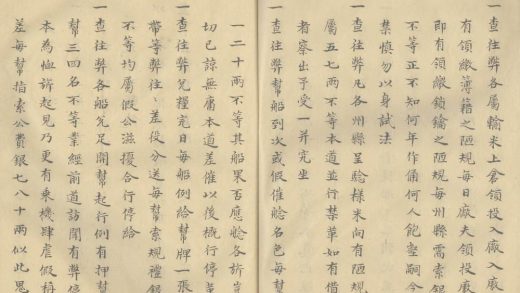 一查往弊各屬輸米上倉領投入廠入廠
有領繳簿籍之陋規每日廠夫領投廠
即有領繳鎖鑰之陋規每州縣需索銀
不等正不知何年作俑何人飽壑嗣今
禁慎勿以身試法
一查往弊凡各州縣呈驗樣米向有陋規
屬五七兩不等本道並行禁革如有借
者察出予受一并究坐
一查往弊幫船到次或假催驗名色每幫
一二十兩不等其船果否應驗各
切已諒無庸本道差催以後概行停革
一查往弊兌糧完日每船例給幫牌一張
帶等弊往々差役分送每幫索規禮銀
不等均屬假公滋擾合行停給
一查往弊各船兌足開幫起行例有押幫
幫三四名不等業經前道訪聞有弊停
本為恤起見乃更有乘機肆虐假稱
差每幫指索公費銀七八十兩似此